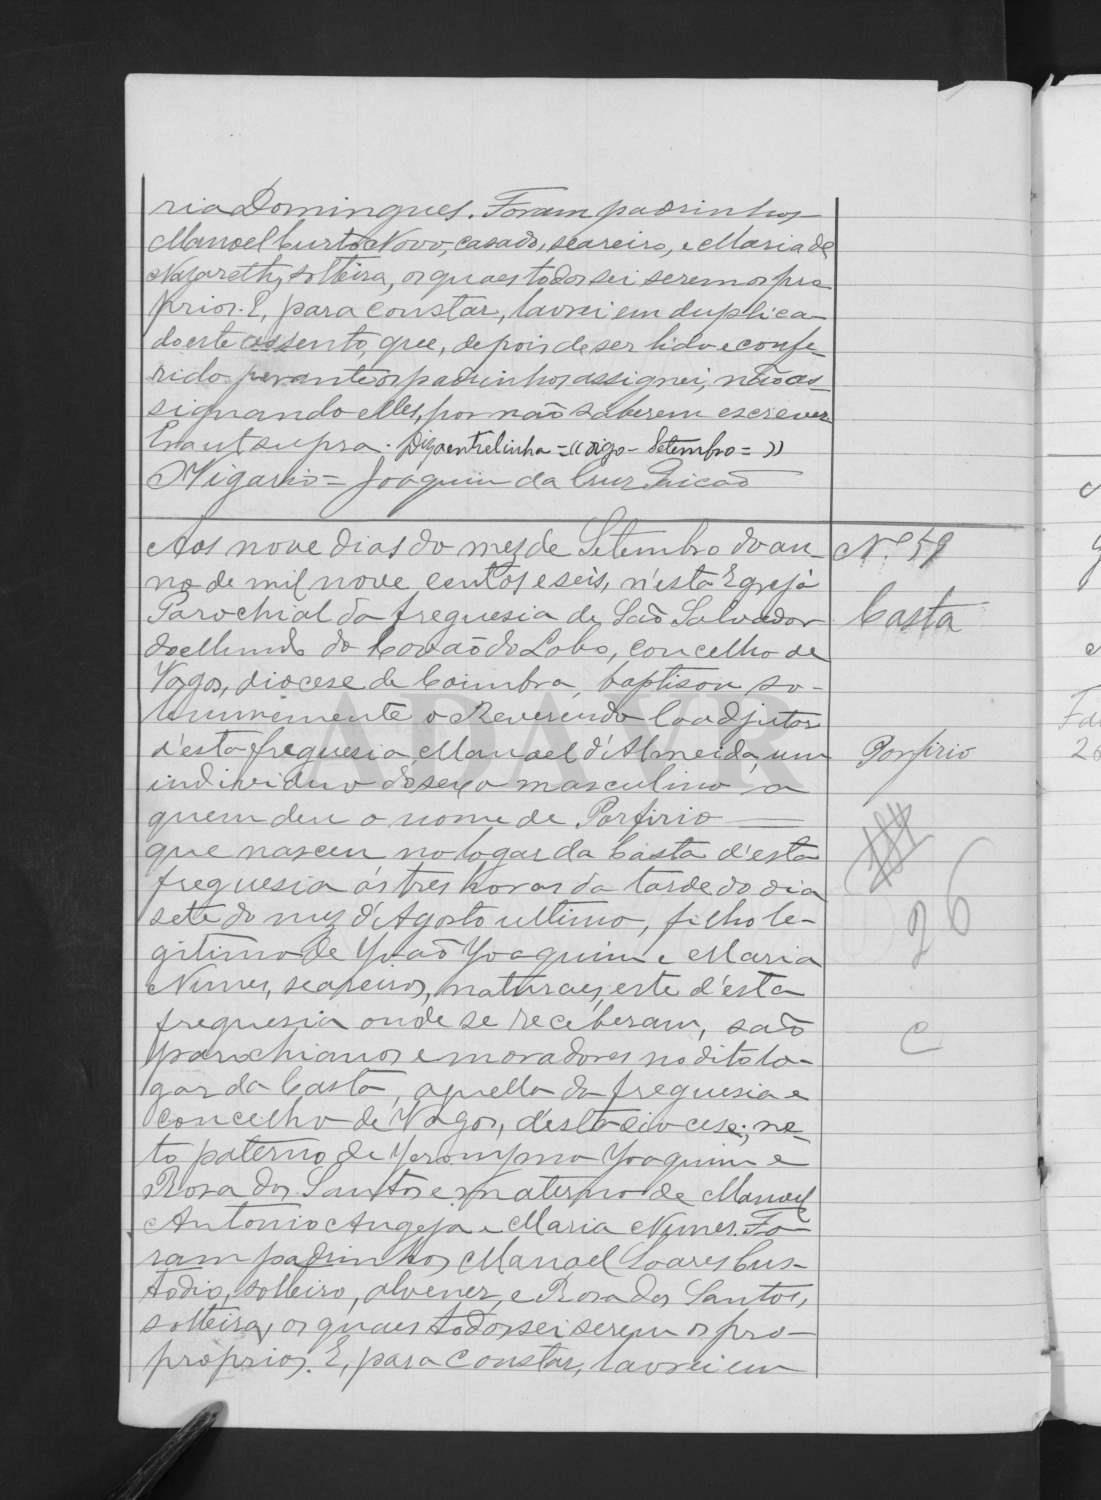 ria Domingues. Foram padrinhos
Manoel Curto Novo, casado, seareiro, e Maria de
Nazareth, solteira, os quaes todos sei serem os pro
prios. E, para constar, lavrei em duplica-
do este assento, que, depois de ser lido e confe-
rido perante os padrinhos assignei, não as-
signando elles, por não saberem escrever
Era ut supra. Diz a entrelinha = (( digo - Setembro = ))
O Vigario = Joaquim da Cruz
Aos nove dias do mez de Setembro do an-
no de mil nove centos e seis, n'esta Egreja
Parochial da freguesia de São Salvador
do Mundo do Covão do Lobo, concelho de
Vagos, diocese de Coimbra, baptisou so-
lemnemente o Reverendo Coadjutor
d'esta freguesia, Manoel d'Almeida, um
individuo do sexo masculino a
quem deu o nome de Porfirio
que nasceu no logar da Casta d'esta
freguesia ás tres horas da tarde do dia
sete do mez d'Agosto ultimo, filho le-
gitimo de João Joaquim e Maria
Nunes, seareiros, naturaes, este d'esta
freguesia onde se receberam, são
parochianos e moradores no dito lo-
gar da Casta, aquella da freguesia e
concelho de Vagos, d'esta diocese; ne-
to paterno de Jeronymo Joaquim e
Rosa dos Santos e materno de Manoel
Antonio Angeja e Maria Nunes. Fo-
ram padrinhos Manoel Soares Cus-
todio, solteiro, alvener, e Rosa dos Santos,
solteira, os quaes todos sei serem os pro-
proprios. E, para constar, lavrei em
N.º 59
Casta
Porfirio
26
C
ADAVR